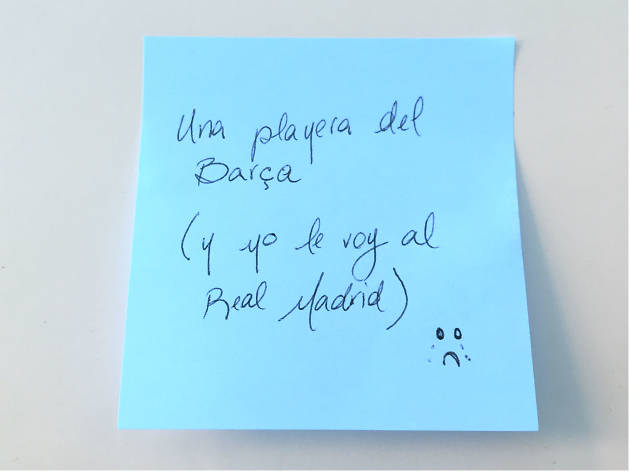 Una playera del
Barça
(y yo le voy al
Real Madrid)